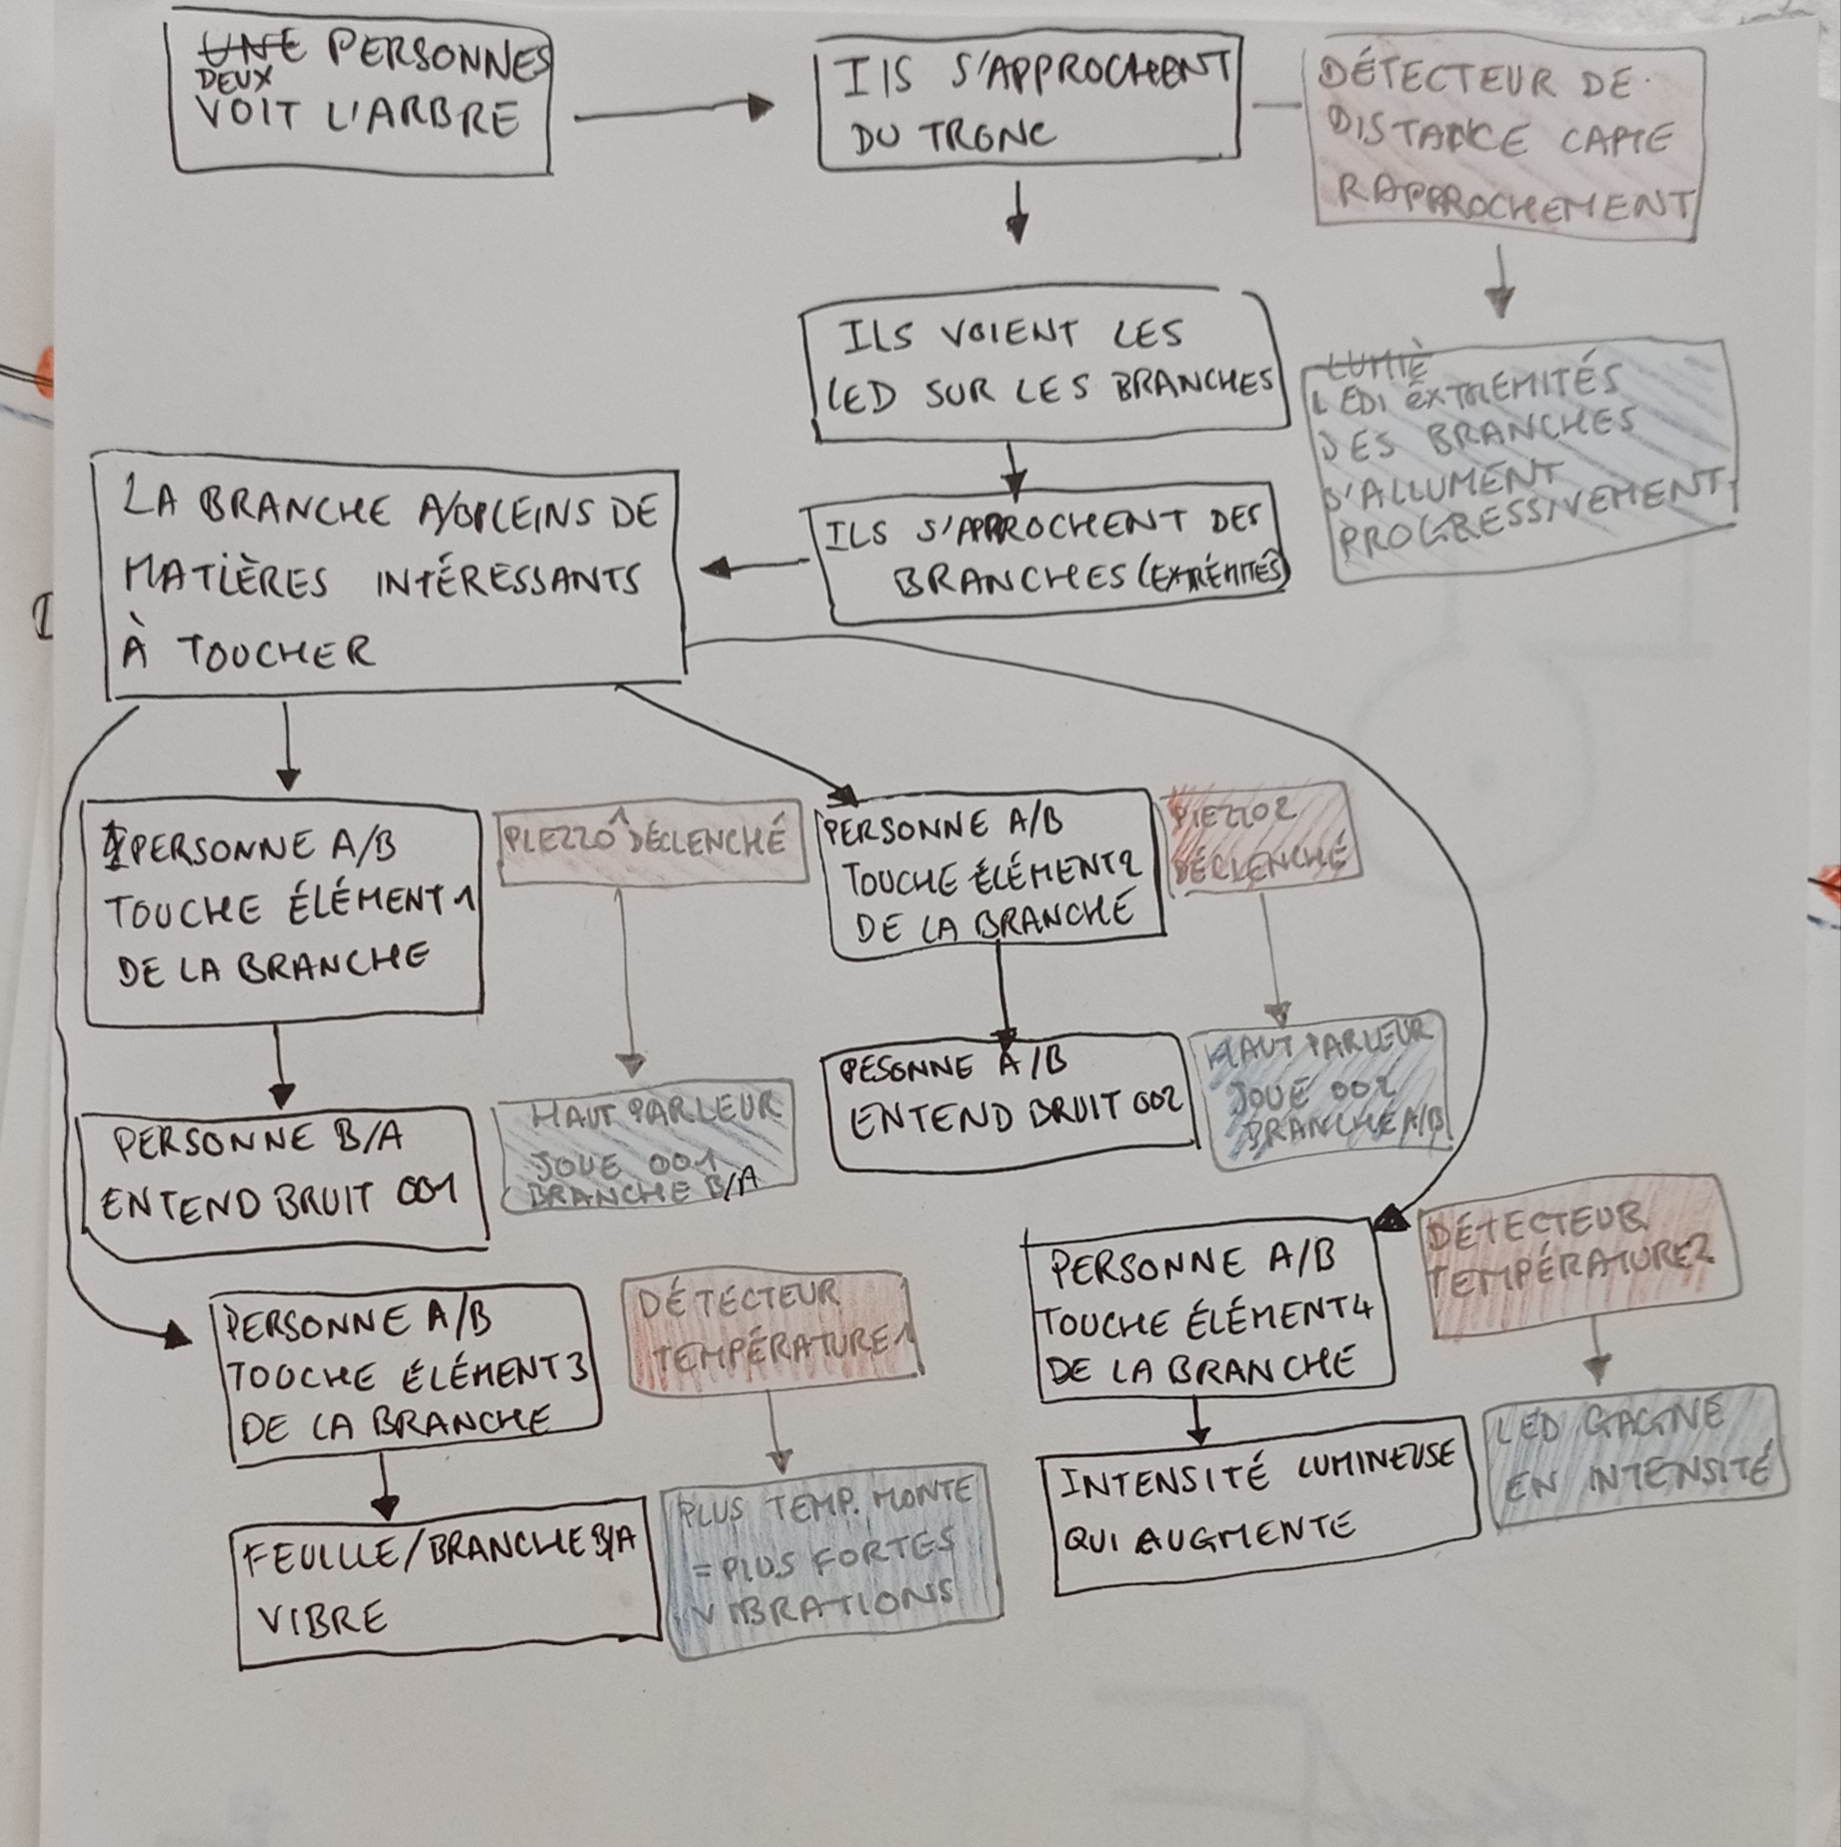 UNE PERSONNES
DEUX
VOIT L'ARBRE
ILS S'APPROCHENT
DU TRONC
DÉTECTEUR DE
DISTANCE CAPTE
RAPPROCHEMENT
ILS VOIENT LES
LED SUR LES BRANCHES
LUMIÈ
LED1 EXTRÉMITÉS
DES BRANCHES
S'ALLUMENT
PROGRESSIVEMENT
ILS S'APPROCHENT DES
BRANCHES (EXTRÉMITÉS)
LA BRANCHE A/B PLEINS DE
MATIÈRES INTÉRESSANTS
À TOUCHER
PERSONNE A/B
TOUCHE ÉLÉMENT 1
DE LA BRANCHE
PIEZZO 1 DÉCLENCHÉ
PERSONNE A/B
TOUCHE ÉLÉMENT 2
DE LA BRANCHE
PIEZZO 2
DÉCLENCHÉ
PERSONNE B/A
ENTEND BRUIT 001
HAUT PARLEUR
JOUE 001
BRANCHE B/A
PESONNE A/B
ENTEND BRUIT 002
HAUT PARLEUR
JOUE 002
BRANCHE A/B
PERSONNE A/B
TOUCHE ÉLÉMENT 3
DE LA BRANCHE
DÉTECTEUR
TEMPÉRATURE 1
PERSONNE A/B
TOUCHE ÉLÉMENT 4
DE LA BRANCHE
DÉTECTEUR
TEMPÉRATURE 2
FEUILLE/BRANCHE B/A
VIBRE
PLUS TEMP. MONTE
= PLUS FORTES
VIBRATIONS
INTENSITÉ LUMINEUSE
QUI AUGMENTE
LED GAGNE
EN INTENSITÉ